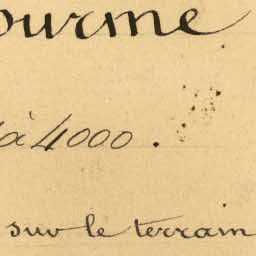 ourme
à 4000.
sur le terrain